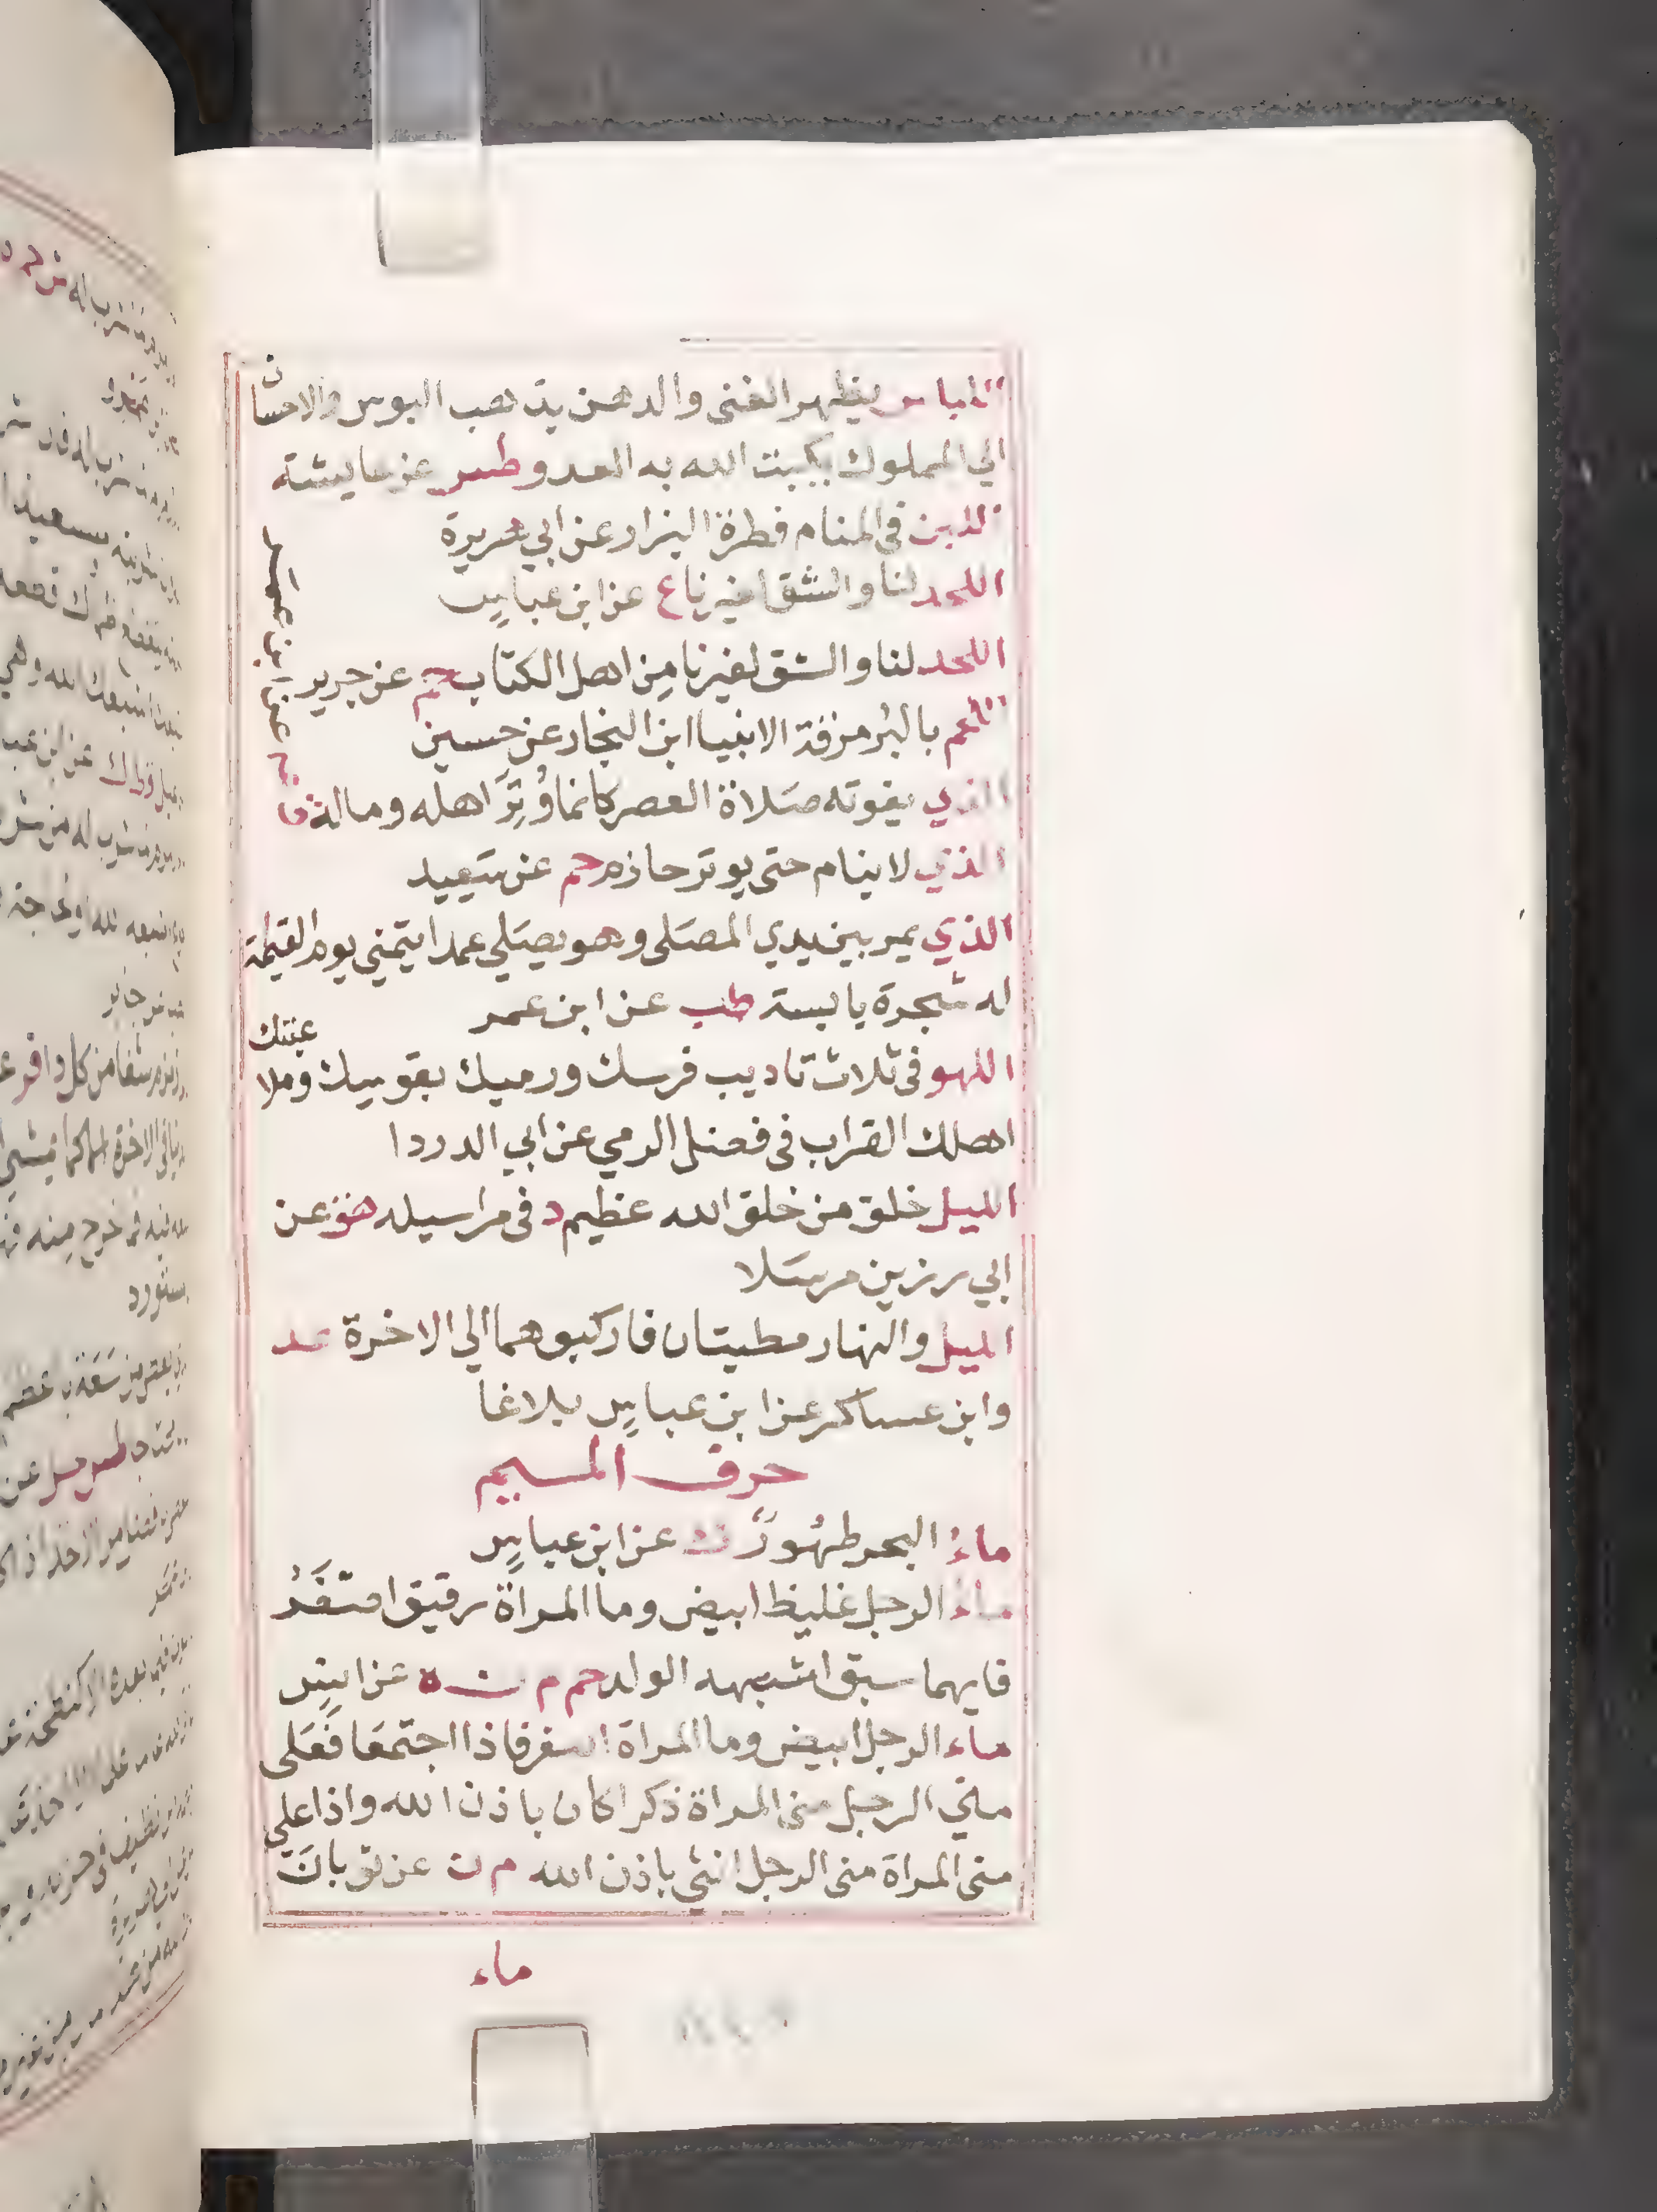 اللباس يظهر الغنى والدهن يذهب البوس والاحسان
الي المملوك يكبت الله به العدو طس عن عايشة
اللبن في المنام فطرة البزار عن ابي هريرة
اللحد لنا والشق لغيرنا ع عن ابن عباس
اللحد لنا والشق لغيرنا مِن اهل الكتاب حم عن جرير
اللحم بالبُر مرقة الانبيا ابن النجار عن حسين
الذي يفوته صَلاة العصر كانما وُتِرَ اهله وماله ق
عن ابن عمر
الذي لا ينام حتى يوتر حازم حم عن سَعِيد
الذي يمر بين يدي المصَلى وهو يصَلي عمدا يتمني يوم القيمة
له شجرة يابسة طب عن ابن عمر
اللهو في ثلاث تاديب فرسك ورميك بقوسك وملاعبتك
اهلك القراب في فضل الرمي عن ابي الدردا
الليل خلق من خلق الله عظيم د في مراسيله هق عن
ابي رزين مرسَلا
الليل والنهار مطيتان فاركبوهما الي الاخرة عد
وابن عساكر عن ابن عباسٍ بلاغا
حرف الميم
ماءُ البحر طهُورٌ ك عن ابن عباسٍ
ماءُ الرجل غليظ ابيض وما المراة رقيق اصْفَرُ
فايهما سبق اشبهه الولد حم م ن ه عن انسٍ
ماء الرجل ابيض وما المراة اصفر فاذا اجتمعَا فَعَلى
مني الرجل مني المراة ذكرا كان باذن الله واذا علي
مني المراة مني الرجل انثي باذن الله م ن عن ثوبانَ
ماء